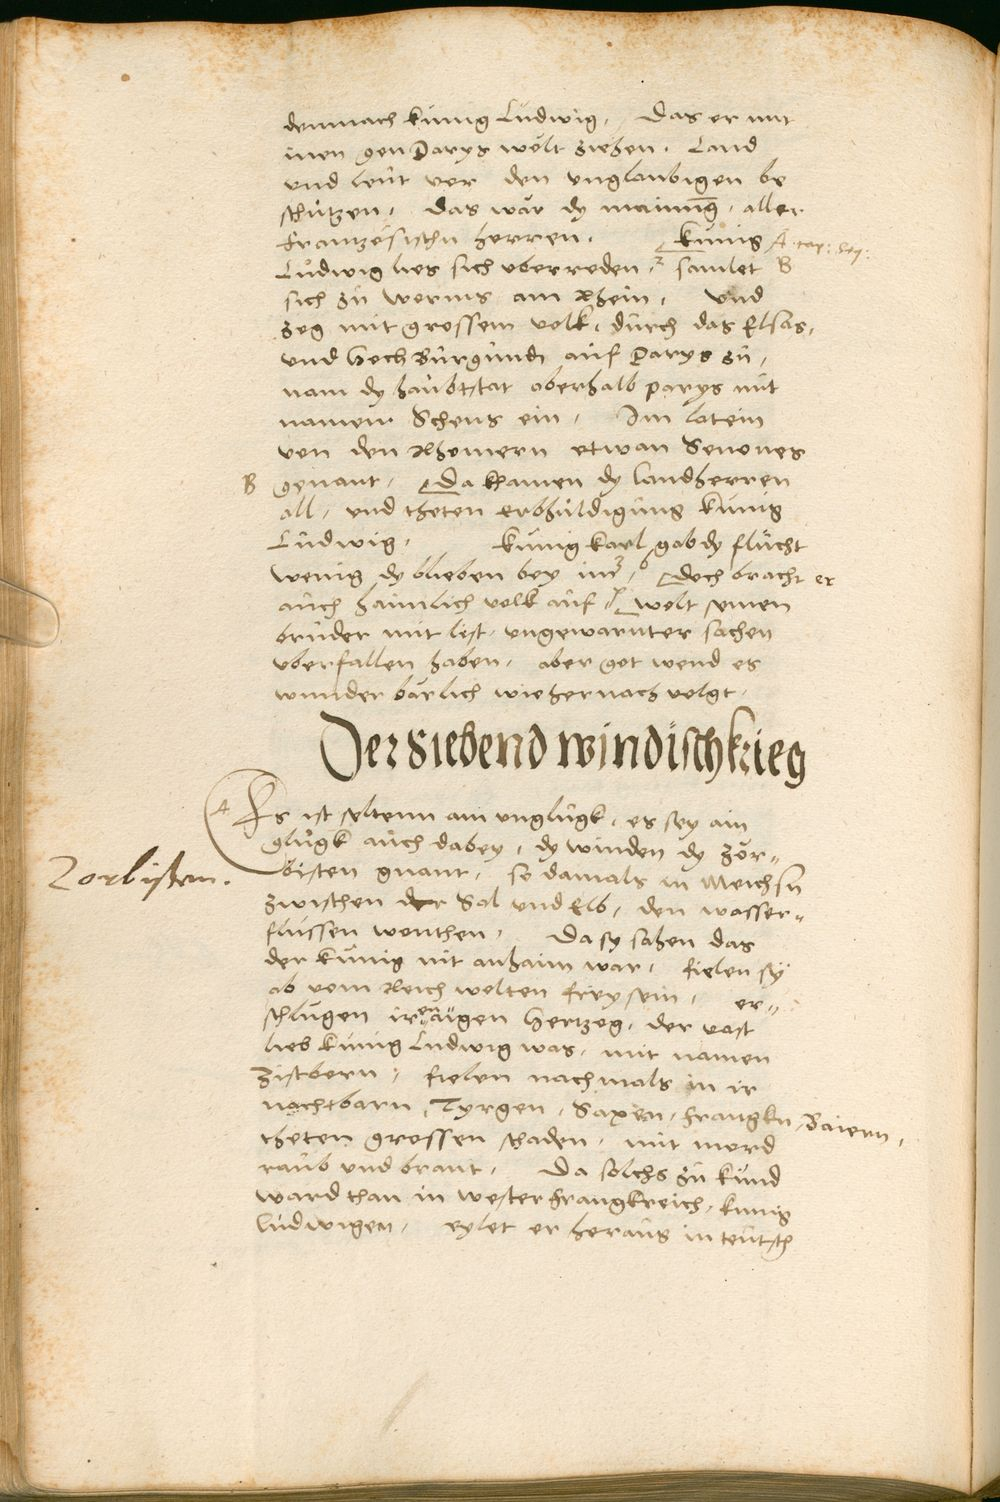 dennnach künig Ludwig, Das er mit
inen gen Parys wölt ziehen. Land
und leüt vor den unglaubigen be
schützen, Das wär dy mainūg, aller
frantzösischn herren. Künig A
Lüdwig lies sich uberreden, samlet B
sich zü worms am Rhein, Und
zog mit grossem volk, dürch das Elsas,
und Hoch Bürgünd, auf Parys zü,
nam dy haübtstat oberhalb parys mit
namen Schons ein, Im latein
von den Rhomern etwan Senones
B genant, Da khamen dy landherren
all, und theten erbhüldigüng Künig
Lüdwig, Künig Karl gab dy flücht
wenig dy blieben bey im, doch bracht er
aüch haimlich volk auf, wolt seinen
brüder mit list, ungewarnter sachen
uberfallen haben, aber got wend es
wunder bärlich wie hernach volgt.
Der siebend windisch krieg
A Es ist seltenn ain unglügk, es sey ain
glügk aüch dabey, dy winden dy zör-
Zorbisten.
bisten gnant, so damals in Meichsn
zwischen der Sal und Elb, den wasser-
flüssen wonthen, Da sy sahen das
der Künig nit anhaim war, fielen sÿ
ab vom Reich wolten frey sein, er-
schlügen iren aigen Hertzog, der vast
lieb Künig Ludwig was, mit namen
Zistborn, fielen nachmals in ir
nachtbarn, Tyrgen, Saxen, Frangkn, Baiern,
theten grossen schaden, mit mord
raüb und brant, Da solchs zü kund
ward than in wester Frangkreich, kunig
Lüdwigen, eylet er heraüs in teütsch